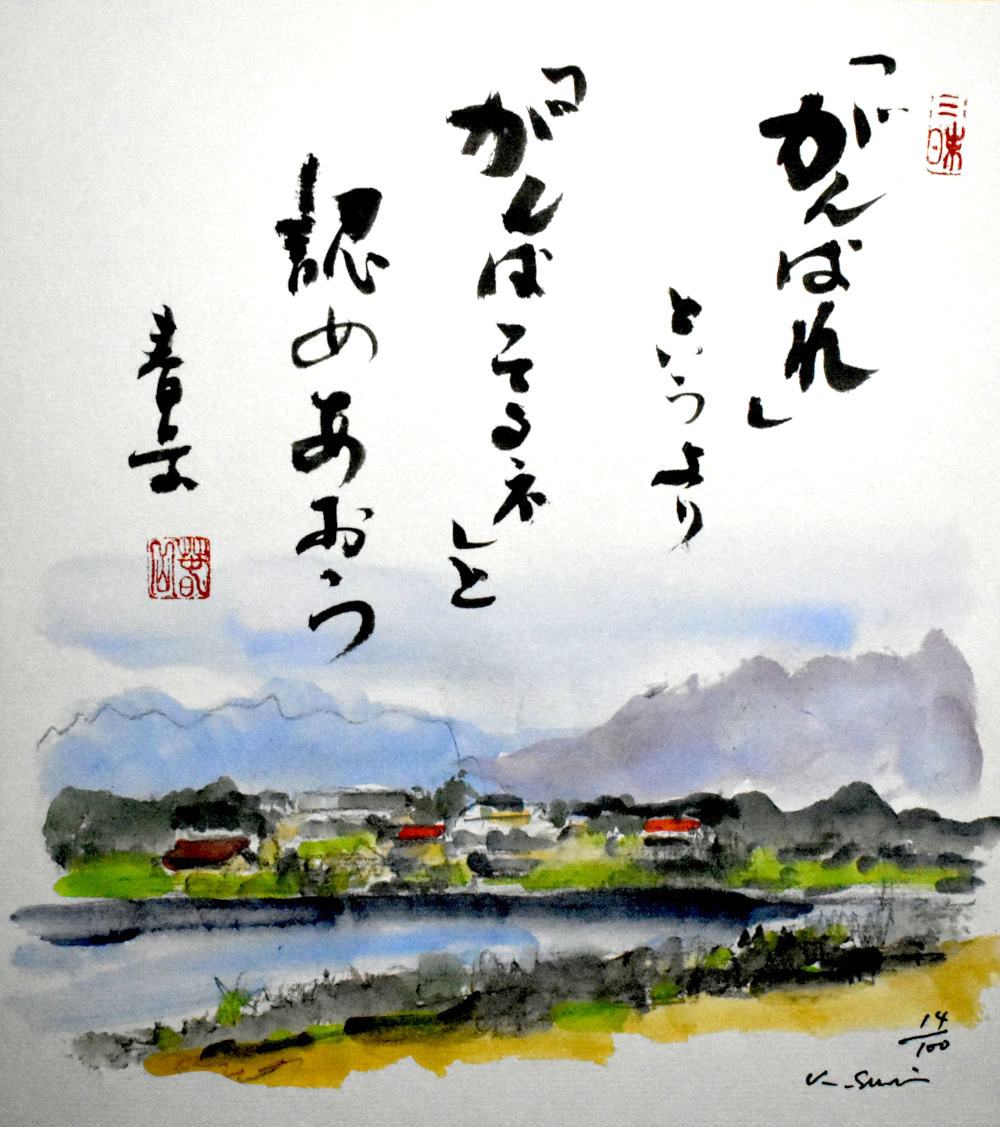 三昧
「がんばれ」
というより
「がんばってるネ」と
認めあおう
14/100